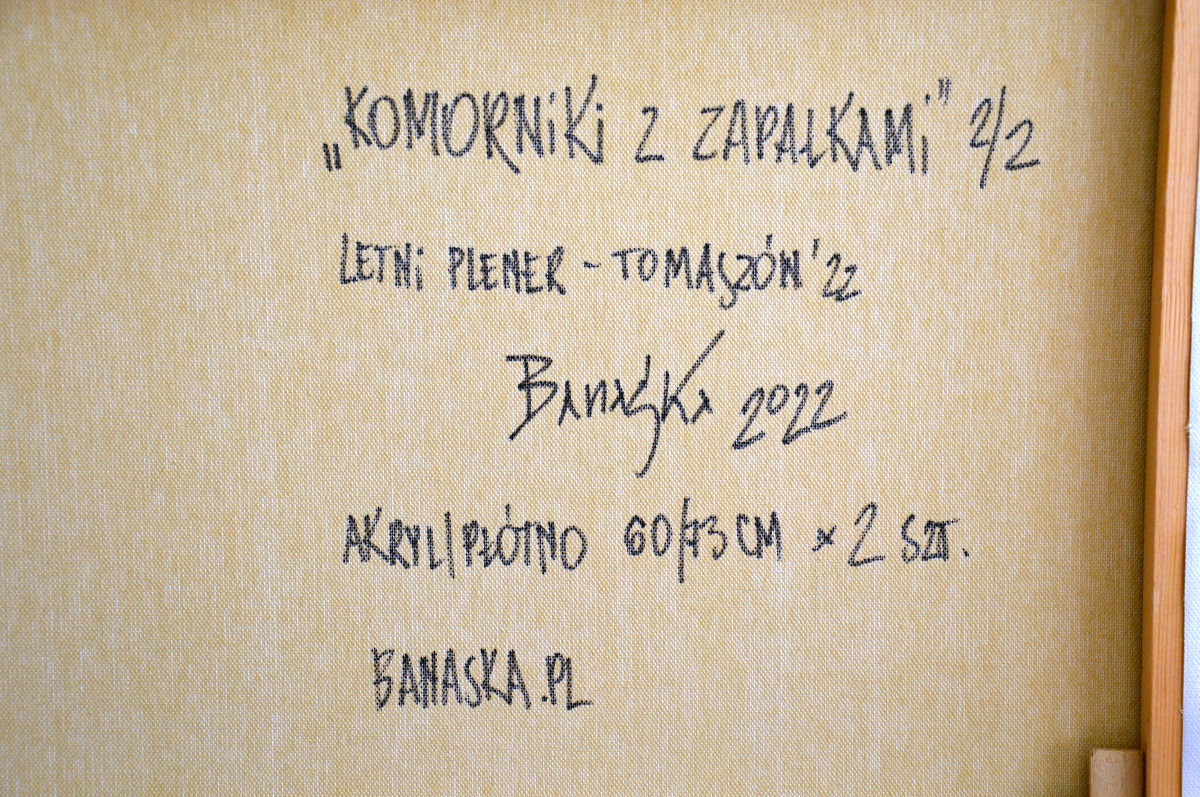 „KOMORNIKI Z ZAPAŁKAMI” 2/2
LETNI PLENER - TOMASZÓW '22
Banaśka 2022
AKRYL/PŁÓTNO 60/73 CM x 2 SZT.
BANASKA.PL